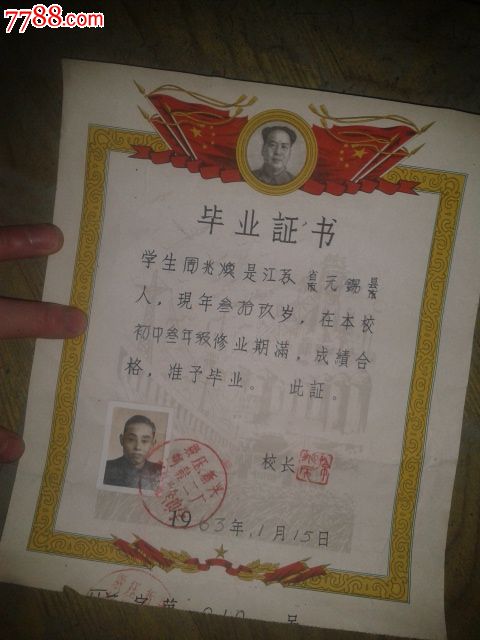 7788.com
毕业証书
学生周兆焕是江苏省市元錫县市
人，現年叁拾玖岁，在本校
初中叁年級修业期滿，成績合
格，准予毕业。此証。
校长
1963年1月15日